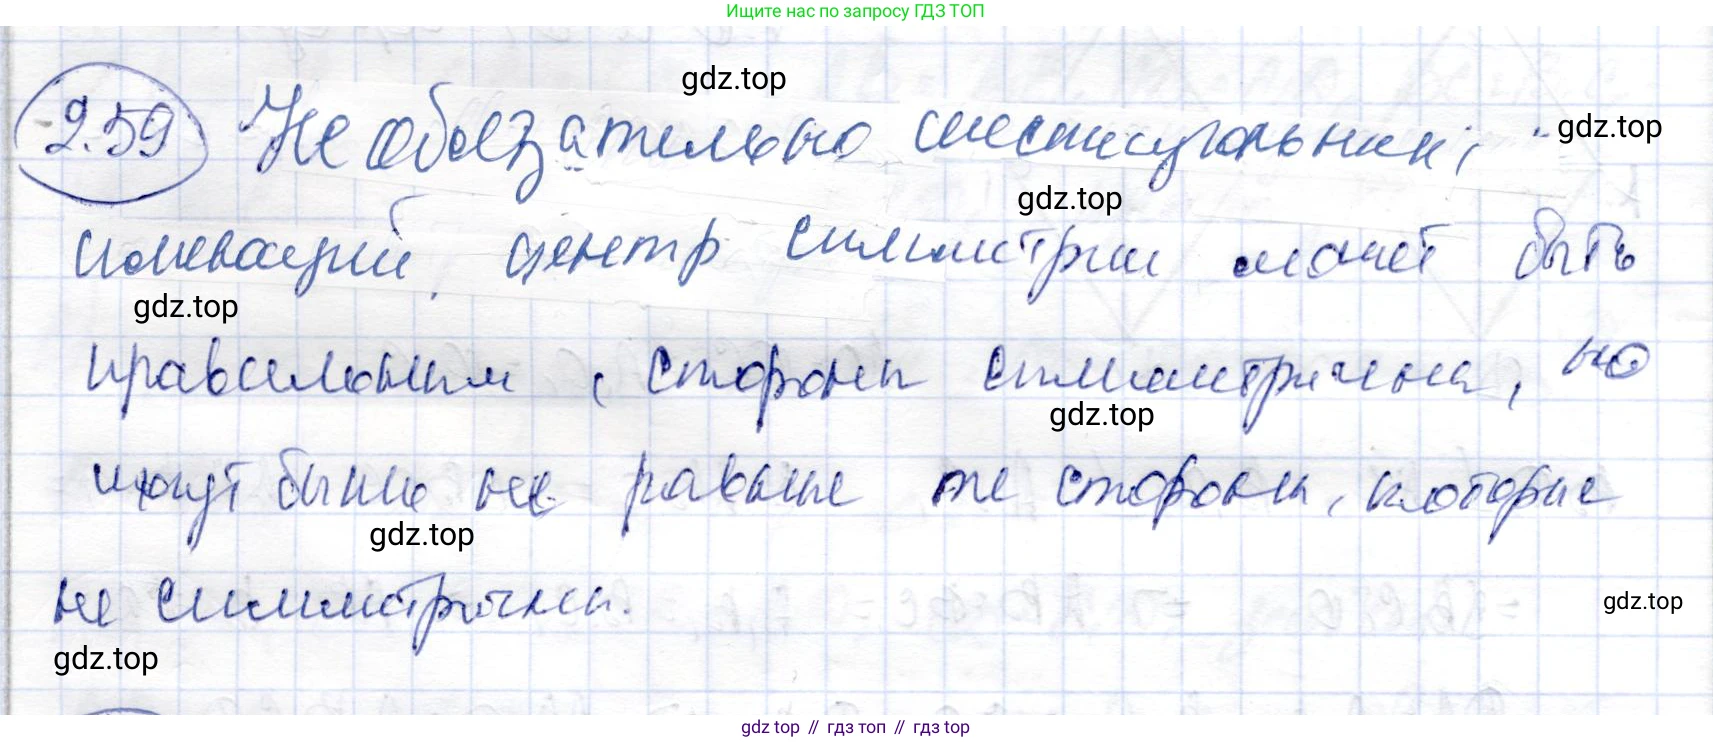 Ищите нас по запросу ГДЗ ТОП
gdz.top
2.59 Не обязательно шестиугольник, gdz.top
gdz.top
имеющий, центр симметрии может быть
gdz.top
правильным, стороны симметричны, но
gdz.top
могут быть не равные те стороны, которые
gdz.top
не симметричны.
gdz.top
gdz.top
gdz top // гдз топ // гдз top